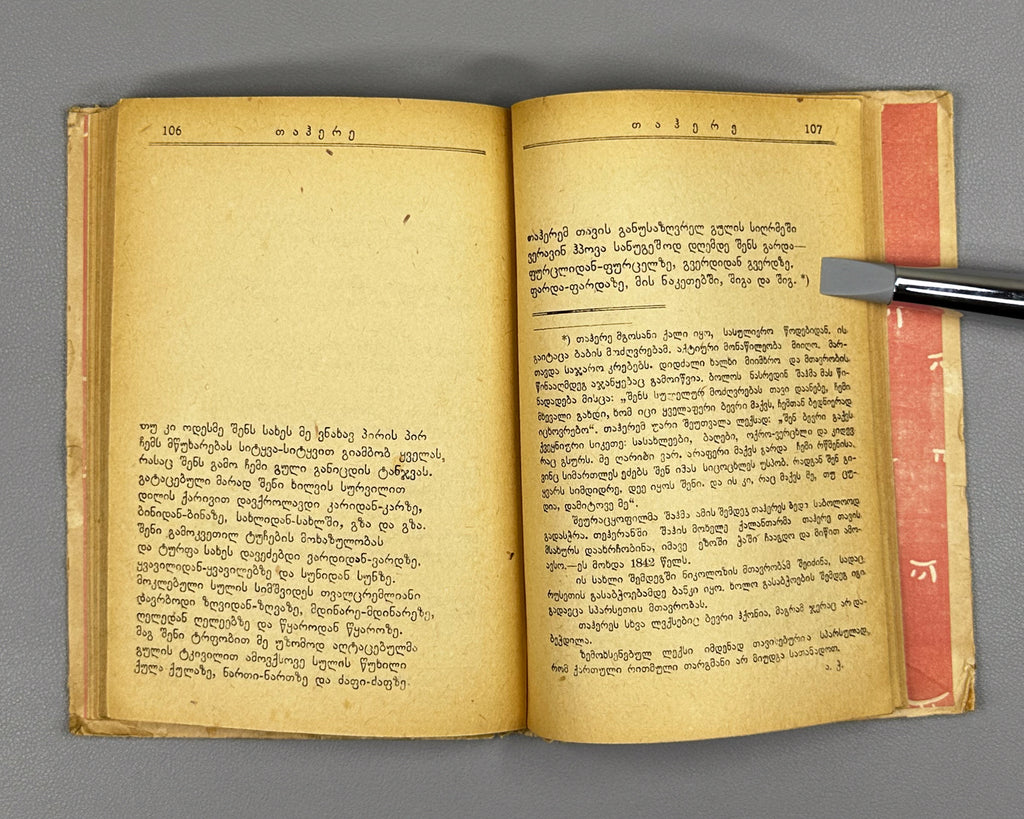 106
თაჰერე
თუ კი ოდესმე შენს სახეს მე ვნახავ პირის პირ
ჩემს მწუხარებას სიტყვა-სიტყვით გიამბობ ყველას,
რასაც შენს გამო ჩემი გული განიცდის ტანჯვას.
გატაცებული მარად შენი ხილვის სურვილით
დილის ქარივით დავქროლავდი კარიდან-კარზე,
ბინიდან-ბინაზე, სახლიდან-სახლში, გზა და გზა.
შენი გამოკვეთილ ტუჩების მოხაზულობას
და ტურფა სახეს დავეძებდი ვარდიდან-ვარდზე,
ყვავილიდან-ყვავილებზე და სუნიდან სუნზე.
მოკლებული სულის სიმშვიდეს თვალცრემლიანი
დავრბოდი ზღვიდან-ზღვაზე, მდინარე-მდინარეზე,
ღელედან ღელეებზე და წყაროდან წყაროზე.
მაგ შენი ტრფობით მე უზომოდ აღტაცებულმა
გულის ტკივილით ამოვქსოვე სულის წუხილი
ქულა ქულაზე, ნართი-ნართზე და ძაფი-ძაფზე.
თაჰერე
107
თაჰერემ თავის განუსაზღვრელ გულის სიღრმეში
ვერავინ ჰპოვა სანუგეშოდ დღემდე შენს გარდა—
ფურცლიდან-ფურცელზე, გვერდიდან გვერდზე,
ფარდა-ფარდაზე, მის ნაკეთებში, შიგა და შიგ. *)
*) თაჰერე მგოსანი ქალი იყო, სასულიერო წოდებიდან. ის
გაიტაცა ბაბის მოძღვრებამ. აქტიური მონაწილეობა მიიღო. მარ-
თავდა საჯარო კრებებს. დიდძალი ხალხი მიიმხრო და მთავრობის
წინააღმდეგ აჯანყებაც გამოიწვია. ბოლოს ნასრედინ შაჰმა მას წი-
ნადადება მისცა: „შენს მოძღვრებას თავი დაანებე, ჩემი
მხევალი გახდი, ხომ იცი ყველაფერი ბევრი მაქვს, ჩემთან ბედნიერად
იცხოვრებო“. თაჰერემ უარი შეუთვალა ლექსად: „შენ ბევრი გაქვს
ქვეყნიური სიკეთე: სასახლეები, ბაღები, ოქრო-ვერცხლი და კიდევ
რაც გსურს. მე ღარიბი ვარ. არაფერი მაქვს გარდა ჩემი რწმენისა.
ვინც სიმართლეს ეძებს შენ იმას სიცოცხლეს უსპობ. რადგან შენ გი-
ყვარს სიმდიდრე, დეე იყოს შენი. და ის კი, რაც მაქვს მე, თუ ცუ-
დია, დამიტოვე მე“.
შეურაცყოფილმა შაჰმა ამის შემდეგ თაჰერეს ზედა საბოლოოდ
გადასჭრა. თეჰერანში შაჰის მოხელე ქალანთარმა თაჰერე თავის
მსახურს დაახრჩობინა, იმავე ეზოში ჭაში ჩააგდო და მიწით ამო-
ავსო.—ეს მოხდა 1842 წელს.
ის სახლი შემდეგში ნიკოლოზის მთავრობამ შეიძინა, სადაც
რუსეთის გასაბჭოებამდე ბანკი იყო. ხოლო გასაბჭოების შემდეგ იგი
გადაეცა სპარსეთის მთავრობას.
თაჰერეს სხვა ლექსებიც ბევრი ჰქონია, მაგრამ ჯერაც არ და-
ბეჭდილა.
ზემოხსენებულ ლექსი იმდენად თავისებურია სპარსულად,
რომ ქართული რითმული თარგმანი არ მიუდგა სათანადოთ.
ა. ჭ.